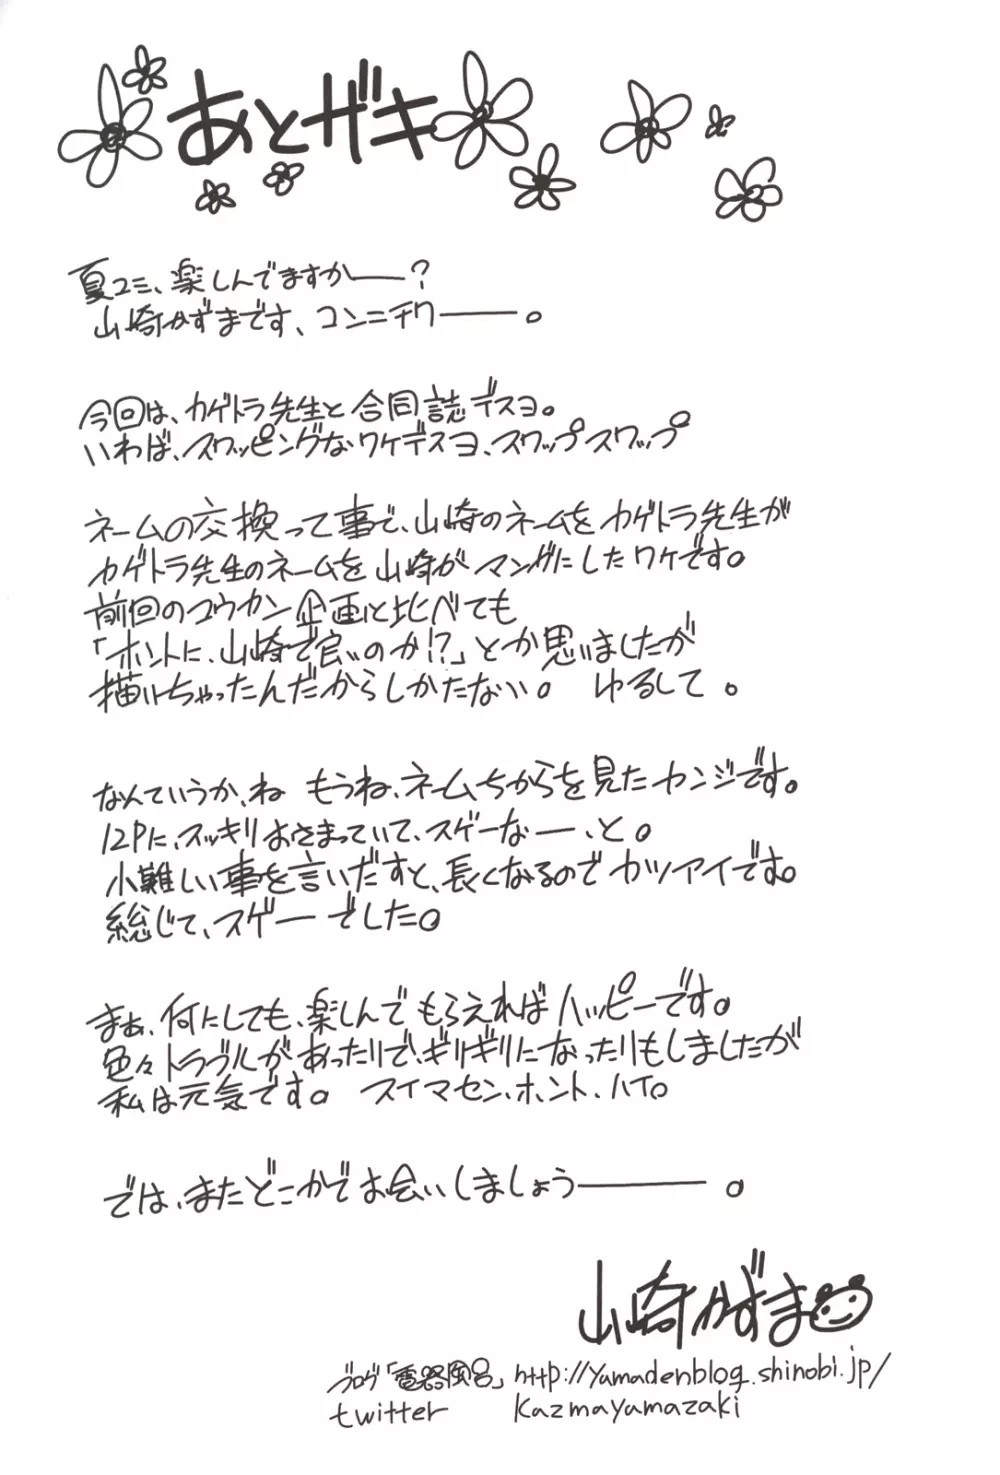 あとザキ
夏コミ、楽しんでますかー？
山崎かずまです、コンニチワー。
今回は、カゲトラ先生と合同誌デスヨ。
いわば、スワッピングなワケデスヨ、スワップスワップ
ネームの交換って事で、山崎のネームをカゲトラ先生が
カゲトラ先生のネームを山崎がマンガにしたワケです。
前回のコウカン企画と比べても
「ホントに、山崎で良いのか!?」とか思いましたが
描いちゃったんだからしかたない。 ゆるして。
なんていうか、ね もうね、ネームぢからを見たカンジです。
12Pに、スッキリおさまっていて、スゲーなー、と。
小難しい事を言いだすと、長くなるのでカツアイです。
総じて、スゲーでした。
まぁ、何にしても、楽しんでもらえればハッピーです。
色々トラブルがあったりで、ギリギリになったりもしましたが
私は元気です。 スイマセン、ホント、ハイ。
では、またどこかでお会いしましょうー。
山崎かずま
ブログ「電器風呂」 http://yamadenblog.shinobi.jp/
twitter kazmayamazaki